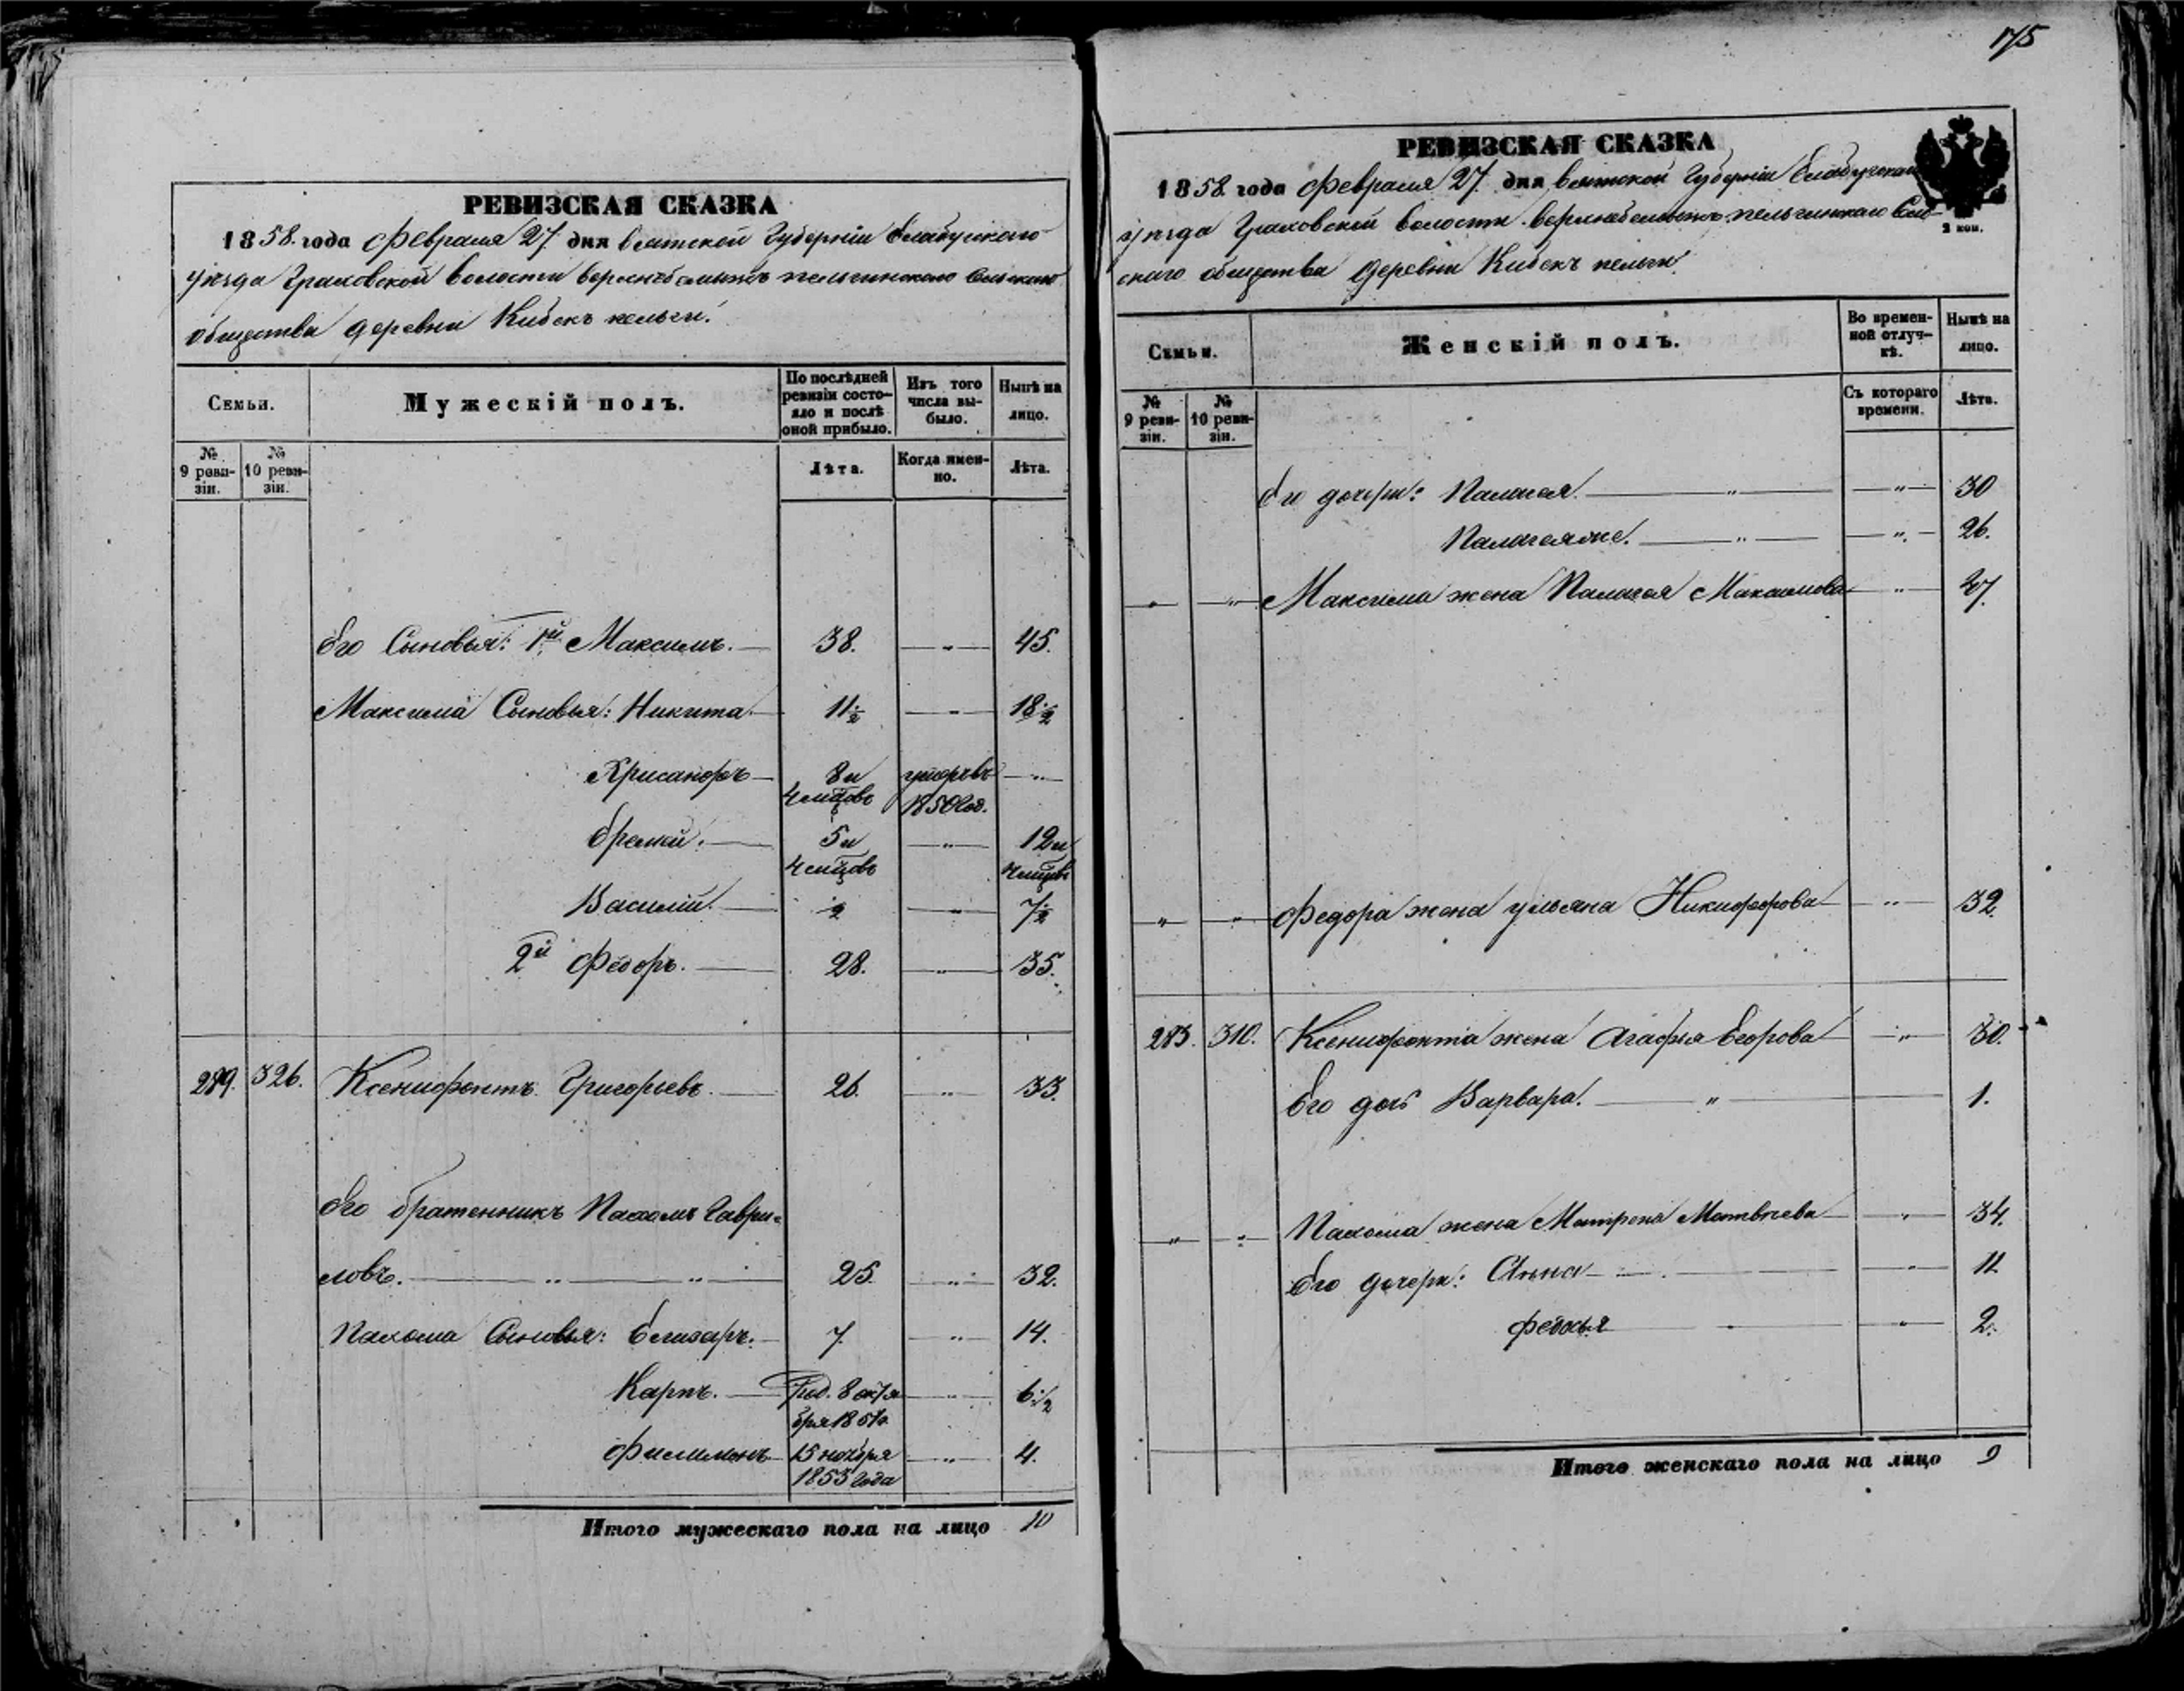 175
РЕВИЗСКАЯ СКАЗКА
1858. года Февраля 27 дня Вятской Губерніи Елабужскаго
уѣзда Граховской волости пельгинскаго Сельскаго
общества деревни Кибекъ пельги.
Семьи.
Мужескій полъ.
По послѣдней ревизіи состояло и послѣ оной прибыло.
Изъ того числа выбыло.
Нынѣ на лицо.
№ 9 ревизіи.
№ 10 ревизіи.
Лѣта.
Когда именно.
Лѣта.
Его Сыновья: 1й Максимъ. 38. — " — 45.
Максима Сыновья: Никита. 11½ — " — 18½
Хрисанфъ 8 и умеръ въ — " —
4 мцовъ 1850 год.
Еремей. 5 и — " — 12 и
4 мцовъ 4 мцовъ
Василій. ½ — " — 7½
2й Федоръ. 28. — " — 35.
289. 326. Ксенофонтъ Григорьевъ. 26. — " — 33.
Его братенникъ Пахомъ Гаври=
ловъ. 25. — " — 32.
Пахома Сыновья: Елизаръ. 7. — " — 14.
Карпъ. Род. 8 октя — " — 6½
бря 1851г.
Филимонъ 15 ноября — " — 4.
1853 года
Итого мужескаго пола на лицо 10
РЕВИЗСКАЯ СКАЗКА
1858. года Февраля 27 дня Вятской Губерніи Елабужскаго
2 коп.
уѣзда Граховской волости пельгинскаго Сель-
скаго общества деревни Кибекъ пельги.
Семьи.
Женскій полъ.
Во временной отлучкѣ.
Нынѣ на лицо.
№ 9 ревизіи.
№ 10 ревизіи.
Съ котораго времени.
Лѣта.
Его дочери: Палагея. — " — 30
Палагея же. — " — 26.
" " Максима жена Палагея Максимова — " —
" " Федора жена Ульяна Никифорова — " — 32.
283. 310. Ксенофонта жена Агафья Егорова — " — 30.
Его дочь Варвара. — " — 1.
" " Пахома жена Матрена Матвѣева — " — 34.
Его дочери: Анна — " — 11
Федосья — " — 2.
Итого женскаго пола на лицо 9